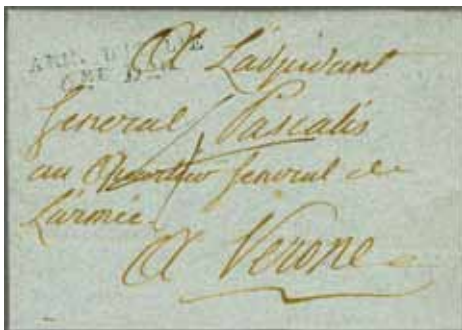 ARM. D'ITALIE
A L'adjudant
General Pascalis
au Quartier General de
L'armée
A Verone